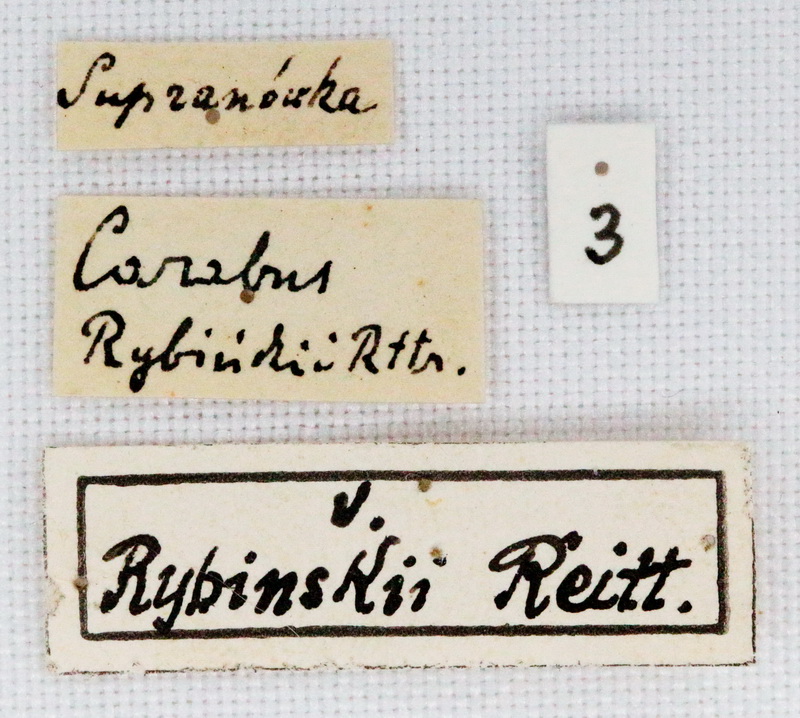 Supranówka
3
Carabus
Rybińskii Rttr.
v.
Rybinskii Reitt.